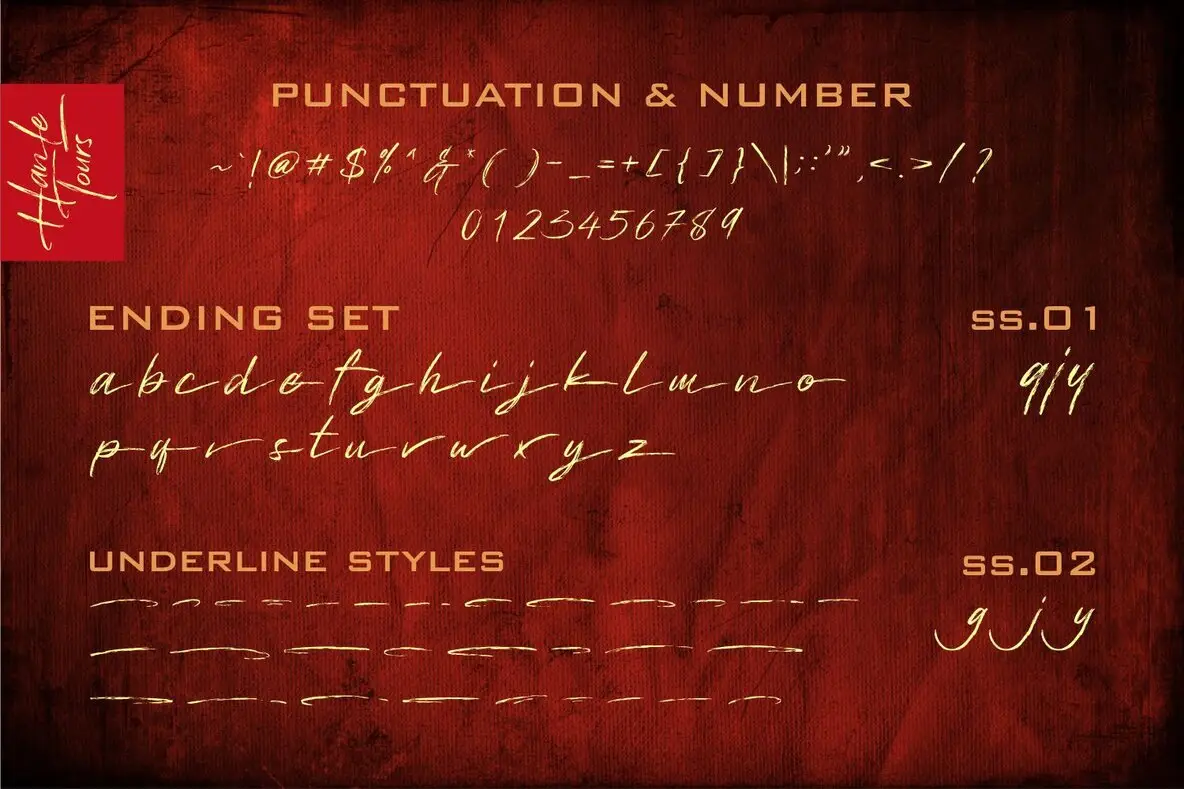 PUNCTUATION & NUMBER
Hante
Tours
~`!@#$%^&*()-_=+[{]}\|;:'",<.>/?
0123456789
ENDING SET
ss.01
abcdefghijklmno
gjy
pqrstuvwxyz
UNDERLINE STYLES
ss.02
gjy